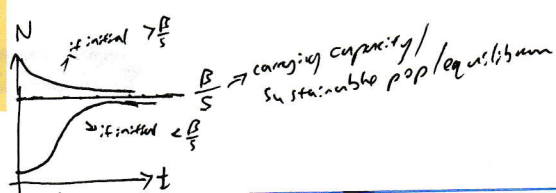 N
if initial > β/s
β/s → carrying capacity/
sustainable pop/equilibrium
if initial < β/s
t